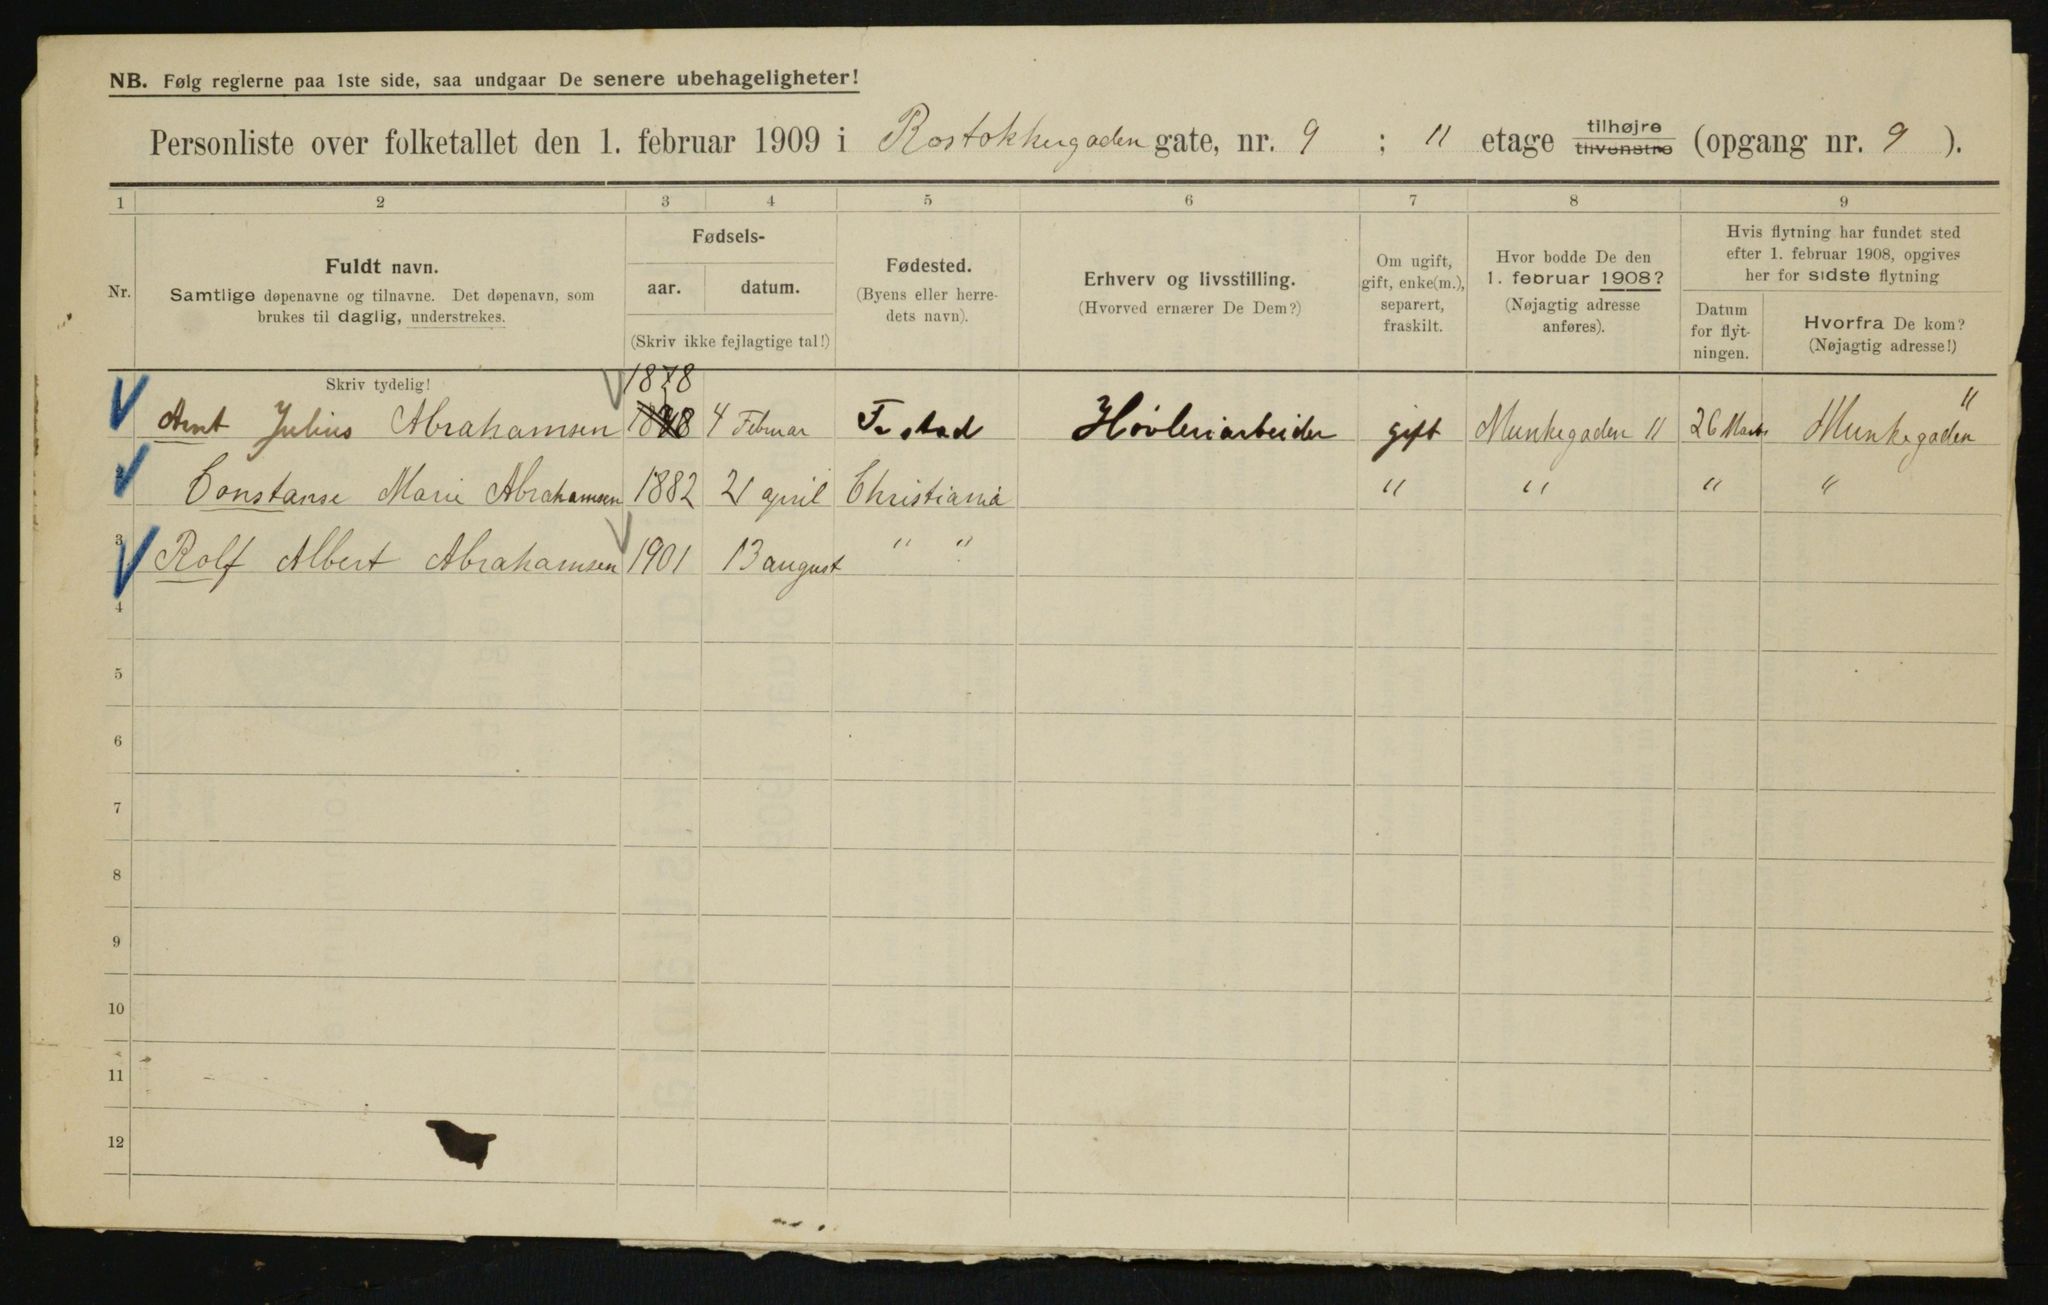 NB. Følg reglerne paa 1ste side, saa undgaar De senere ubehageligheter!
Personliste over folketallet den 1. februar 1909 i Rostokkergaden gate, nr. 9 ; 11 etage tilhøjre tilvenstre (opgang nr. 9 ).
1 2 3 4 5 6 7 8 9
Nr.
Fuldt navn.
Samtlige døpenavne og tilnavne. Det døpenavn, som
brukes til daglig, understrekes.
Fødsels-
aar. datum.
(Skriv ikke fejlagtige tal!)
Fødested.
(Byens eller herre-
dets navn).
Erhverv og livsstilling.
(Hvorved ernærer De Dem?)
Om ugift,
gift, enke(m.),
separert,
fraskilt.
Hvor bodde De den
1. februar 1908?
(Nøjagtig adresse
anføres).
Hvis flytning har fundet sted
efter 1. februar 1908, opgives
her for sidste flytning
Datum
for flyt-
ningen.
Hvorfra De kom?
(Nøjagtig adresse!)
Skriv tydelig!
1878
Arnt Julius Abrahamsen 4 Februar Fr stad Høvleriarbeider gift Munkegaden 11 26 Marts Munkegaden 11
2 Constanse Marie Abrahamsen 1882 21 april Christiania " " " "
3 Rolf Albert Abrahamsen 1901 13 august " "
4
5
6
7
8
9
10
11
12